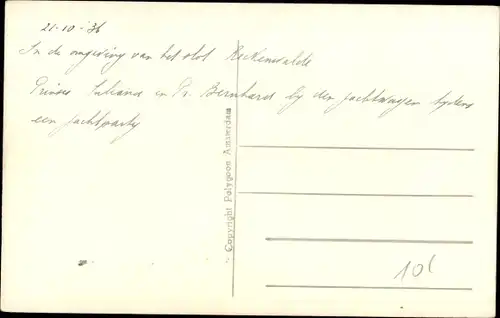 21-10-'36
In de omgeving van het slot Reckenwalde
Prinses Juliana en Pr. Bernhard bij den jachtwagen tijdens
een jachtparty
© Copyright Polygoon Amsterdam
10